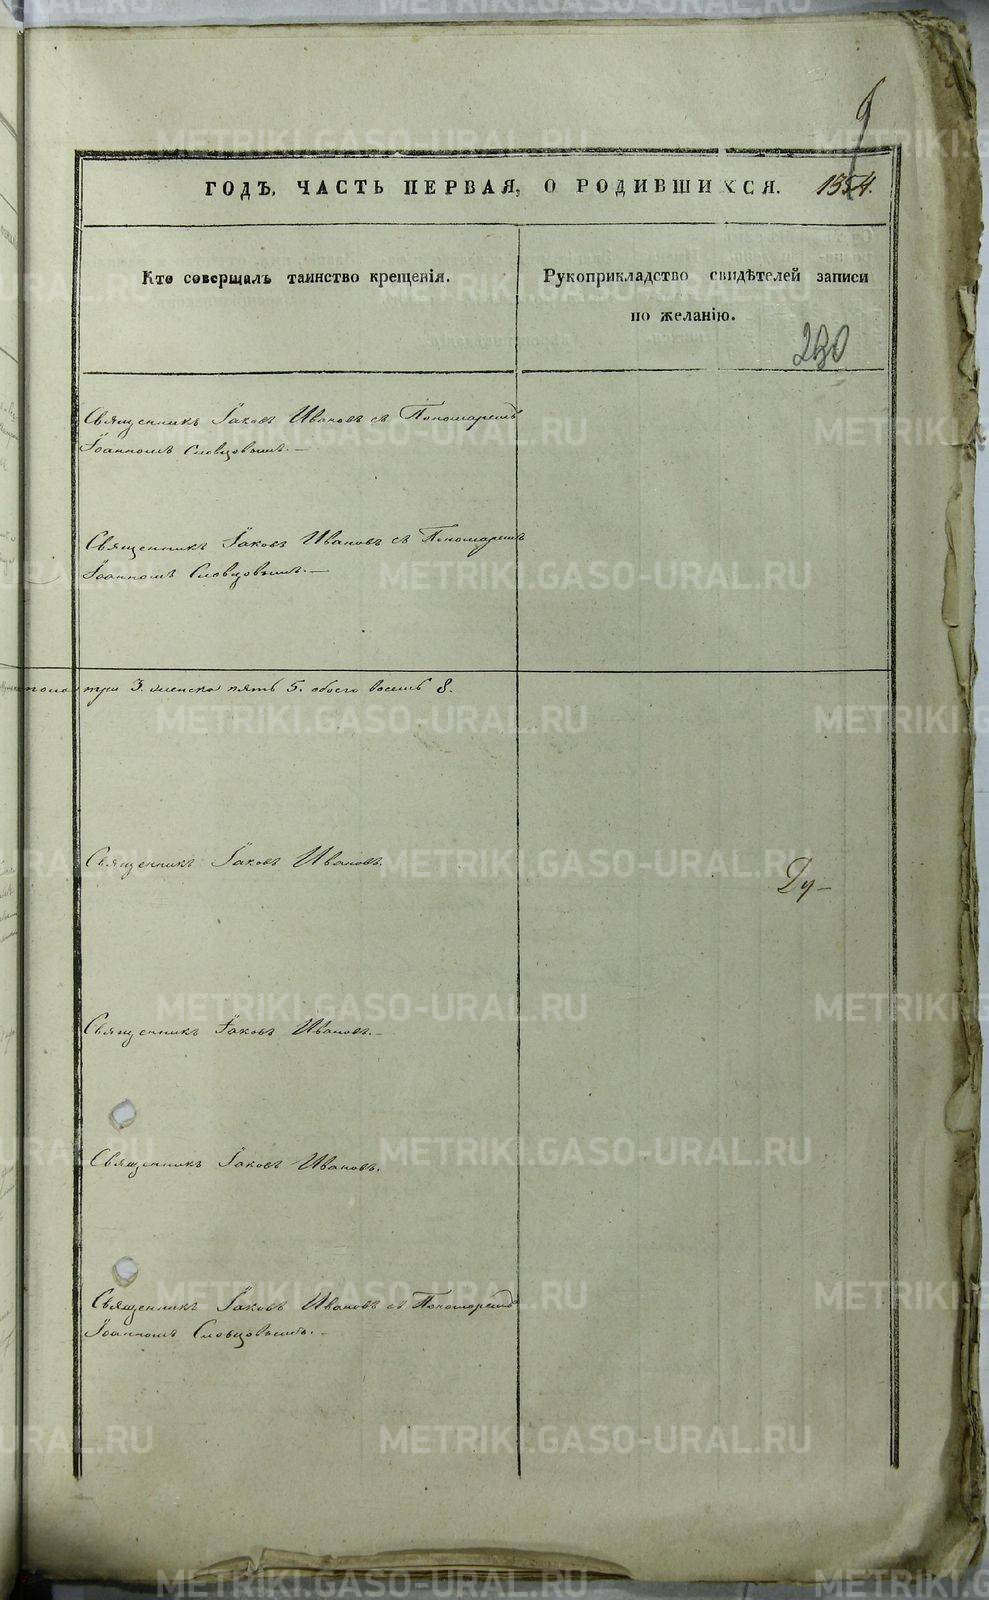 ГОДЪ, ЧАСТЬ ПЕРВАЯ, О РОДИВШИХСЯ.
Кто совершалъ таинство крещенія.
Рукоприкладство свидѣтелей записи
по желанію.
230
Священникъ Іаковъ Ивановъ съ Пономаремъ
Іоанномъ Словцовымъ.—
Священникъ Іаковъ Ивановъ съ Пономаремъ
Іоанномъ Словцовымъ.—
три 3. женска пять 5. обоего восемь 8.
Священникъ Іаковъ Ивановъ.
Священникъ Іаковъ Ивановъ.—
Священникъ Іаковъ Ивановъ.
Священникъ Іаковъ Ивановъ съ Пономаремъ
Іоанномъ Словцовымъ.—
METRIKI.GASO-URAL.RU